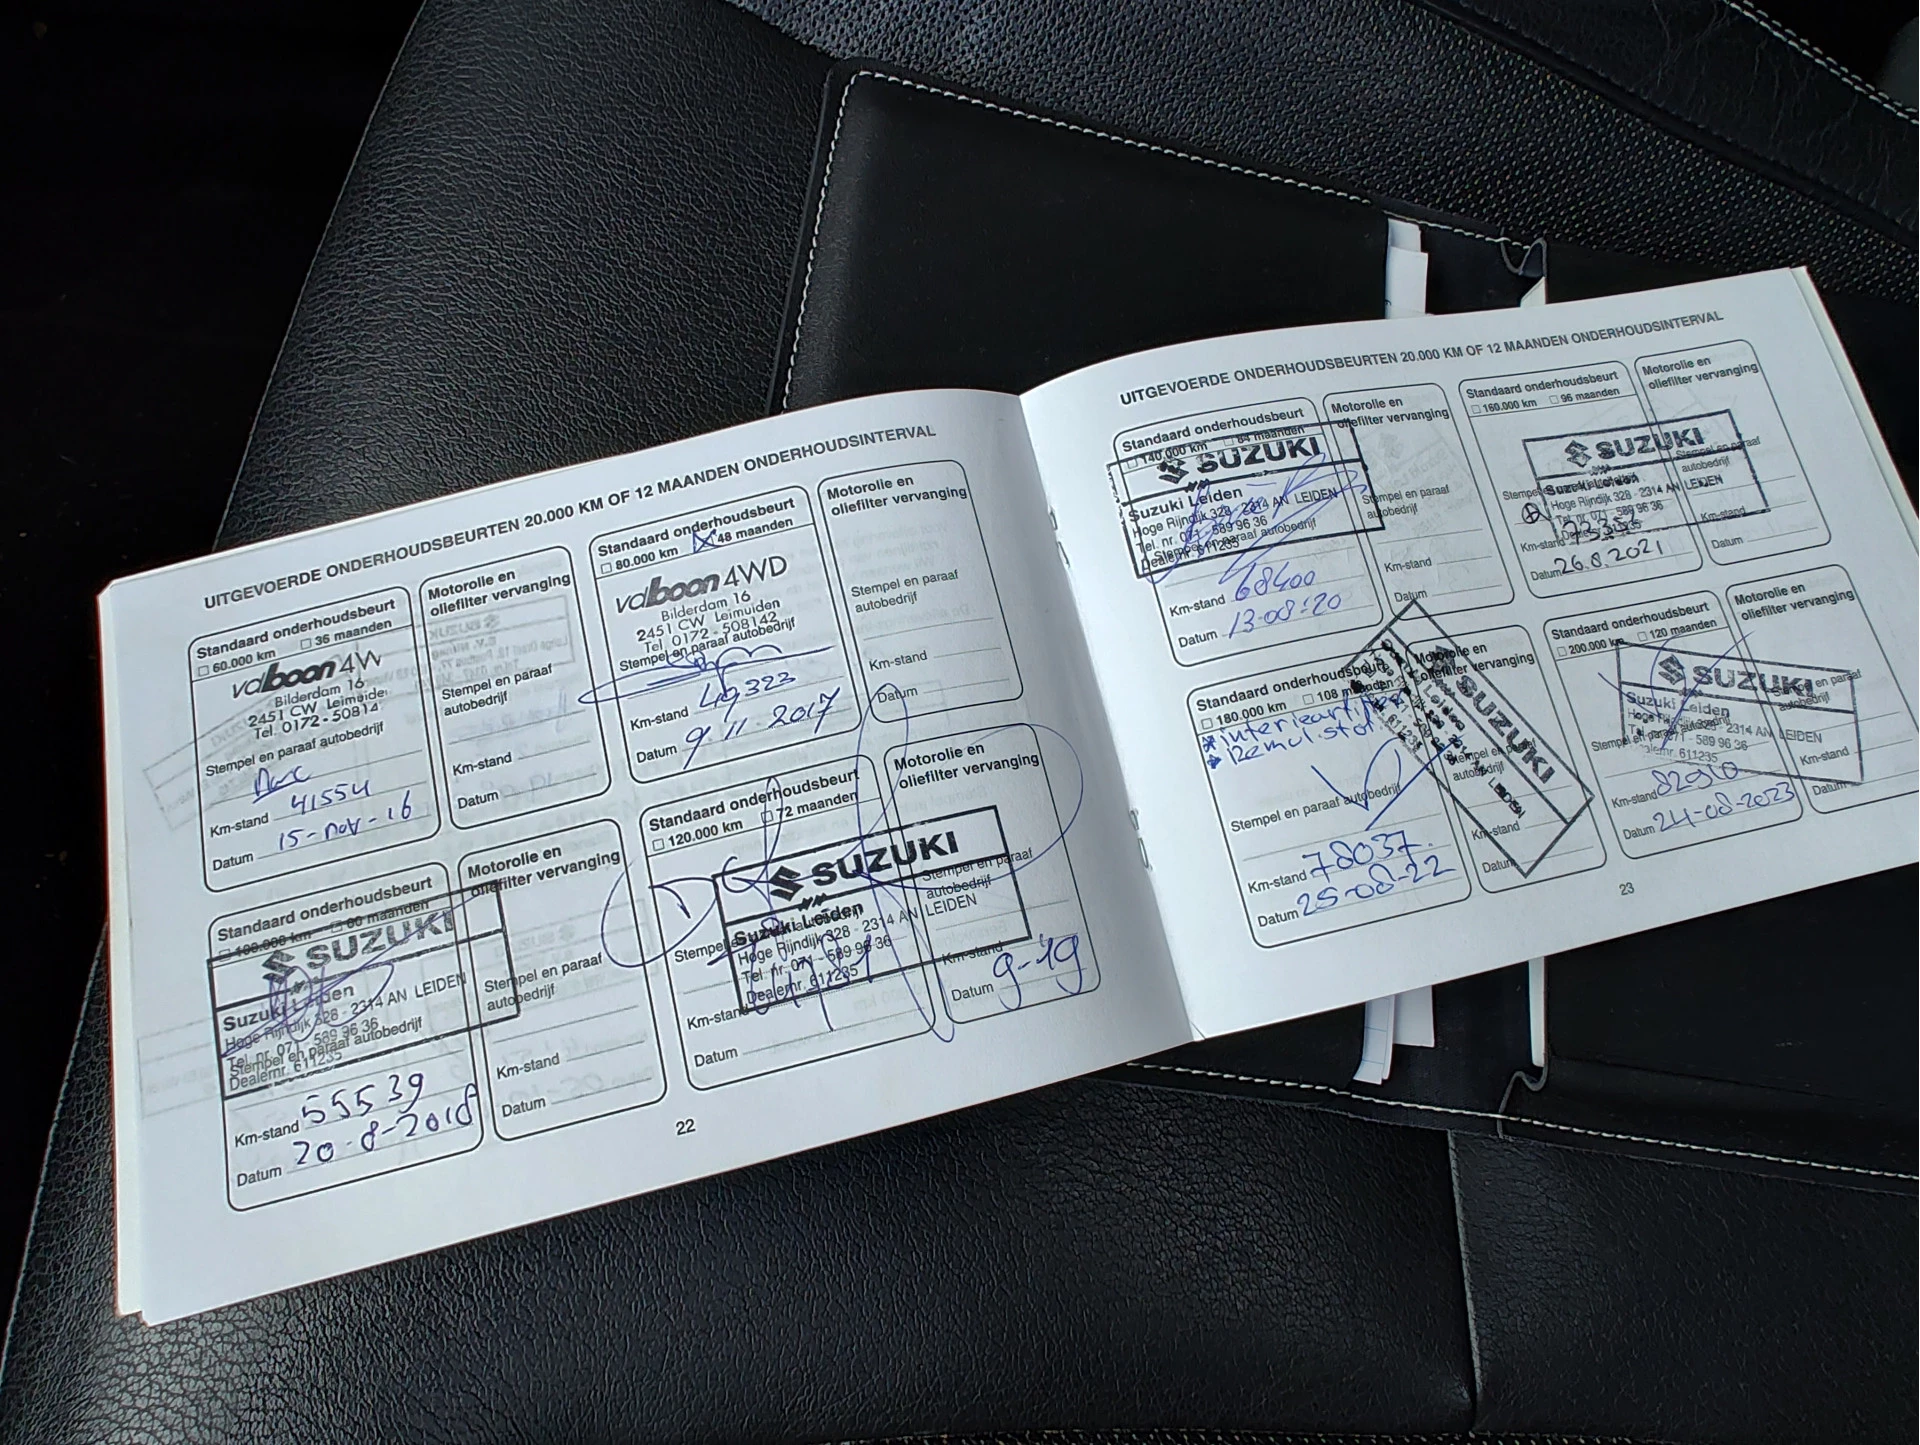 UITGEVOERDE ONDERHOUDSBEURTEN 20.000 KM OF 12 MAANDEN ONDERHOUDSINTERVAL
Standaard onderhoudsbeurt
☐ 60.000 km ☐ 36 maanden
valboon 4W
Bilderdam 16
2451 CW Leimuiden
Tel. 0172-50814
Stempel en paraaf autobedrijf
Km-stand 41554
Datum 15-nov-16
Motorolie en
oliefilter vervanging
Stempel en paraaf
autobedrijf
Km-stand
Datum
Standaard onderhoudsbeurt
☐ 80.000 km ☒ 48 maanden
valboon 4WD
Bilderdam 16
2451 CW Leimuiden
Tel. 0172-508142
Stempel en paraaf autobedrijf
Km-stand 49323
Datum 9.11.2017
Motorolie en
oliefilter vervanging
Stempel en paraaf
autobedrijf
Km-stand
Datum
Standaard onderhoudsbeurt
☐ 100.000 km ☐ 60 maanden
SUZUKI
Suzuki Leiden
Hoge Rijndijk 328 - 2314 AN LEIDEN
Tel. nr. 071 - 589 96 36
Stempel en paraaf autobedrijf
Dealernr. 611235
Km-stand 55539
Datum 20-8-2018
Motorolie en
oliefilter vervanging
Stempel en paraaf
autobedrijf
Km-stand
Datum
Standaard onderhoudsbeurt
☐ 120.000 km ☐ 72 maanden
SUZUKI
Suzuki Leiden
Hoge Rijndijk 328 - 2314 AN LEIDEN
Tel. nr. 071 - 589 96 36
Dealernr. 611235
Km-stand
Datum
Motorolie en
oliefilter vervanging
Stempel en paraaf
autobedrijf
Km-stand
Datum 9-19
22
UITGEVOERDE ONDERHOUDSBEURTEN 20.000 KM OF 12 MAANDEN ONDERHOUDSINTERVAL
Standaard onderhoudsbeurt
☐ 140.000 km ☐ 84 maanden
SUZUKI
Suzuki Leiden
Hoge Rijndijk 328 - 2314 AN LEIDEN
Tel. nr. 071 - 589 96 36
Stempel en paraaf autobedrijf
Dealernr. 611235
Km-stand 68400
Datum 13-08-'20
Motorolie en
oliefilter vervanging
Stempel en paraaf
autobedrijf
Km-stand
Datum
Standaard onderhoudsbeurt
☐ 160.000 km ☐ 96 maanden
SUZUKI
Suzuki Leiden
Hoge Rijndijk 328 - 2314 AN LEIDEN
Tel. nr. 071 - 589 96 36
Km-stand
Datum 26.8.2021
Motorolie en
oliefilter vervanging
Stempel en paraaf
autobedrijf
Km-stand
Datum
Standaard onderhoudsbeurt
☐ 180.000 km ☐ 108 maanden
Stempel en paraaf autobedrijf
Km-stand 78037
Datum 25-08-22
Motorolie en
oliefilter vervanging
SUZUKI
Suzuki Leiden
611235
LEIDEN
autobedrijf
Km-stand
Datum
Standaard onderhoudsbeurt
☐ 200.000 km ☐ 120 maanden
SUZUKI
Suzuki Leiden
Hoge Rijndijk 328 - 2314 AN LEIDEN
071 - 589 96 36
611235
Km-stand 82910
Datum 24-08-2023
Motorolie en
oliefilter vervanging
autobedrijf
Km-stand
Datum
23